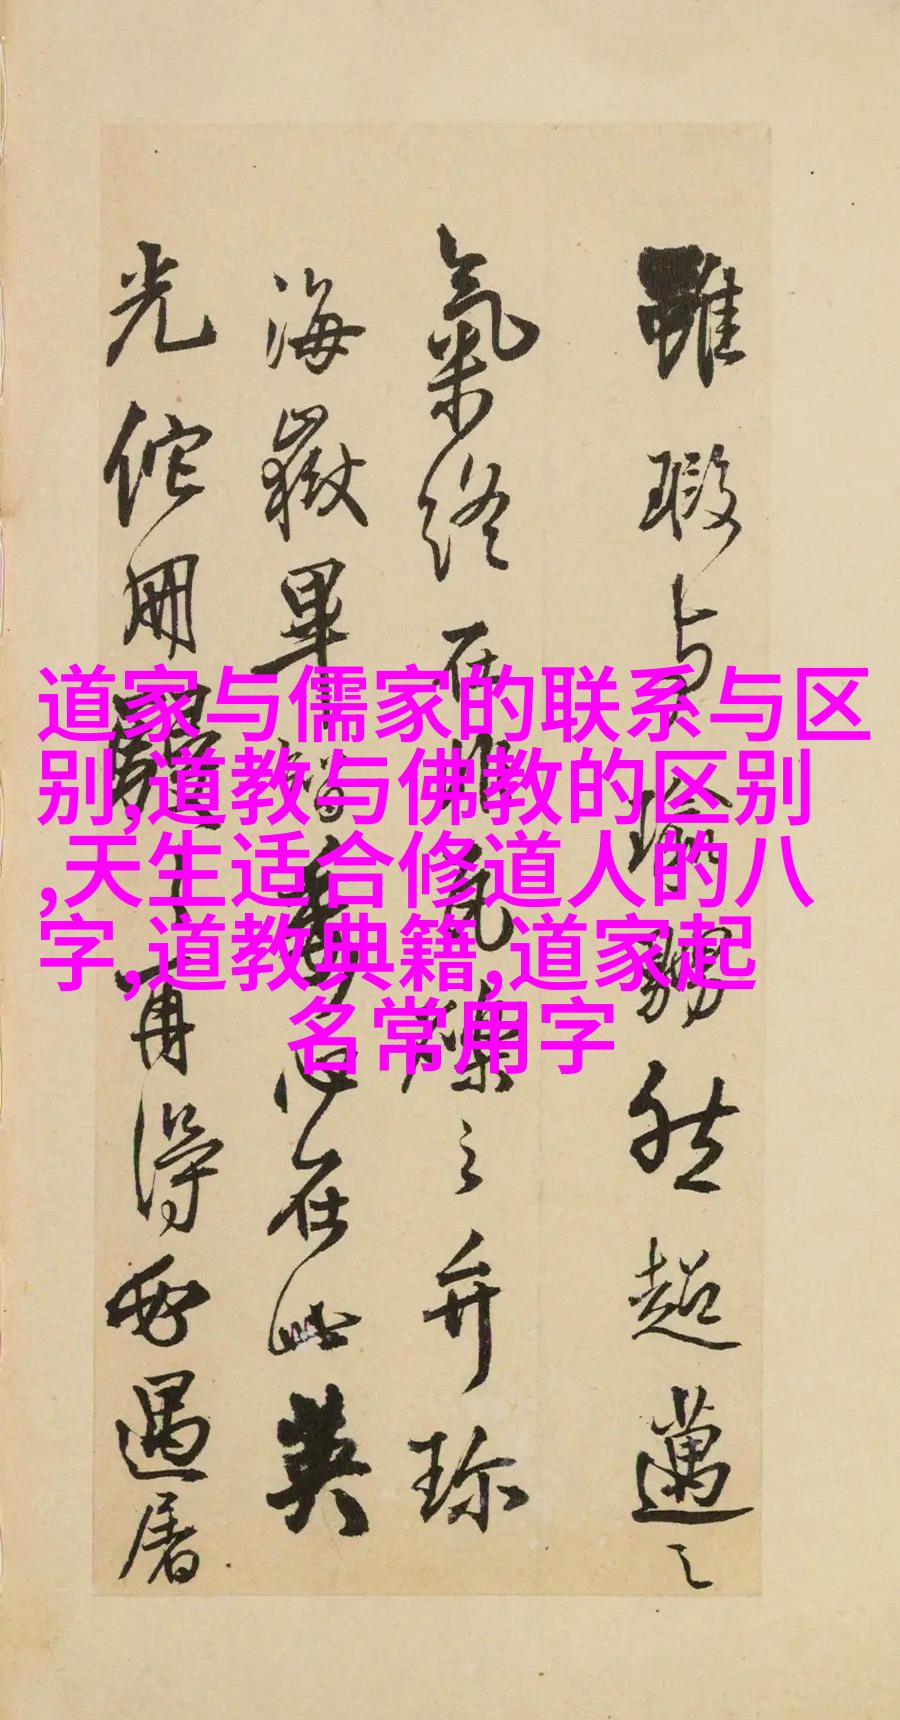 道家与儒家的联系与区
别,道教与佛教的区别
,天生适合修道人的八
字,道教典籍,道家起
名常用字
雖瑕与瑜弱然超邁之
氣終在雄之弁珎
海嶽畢在此英
光佗用了再得好遇屠